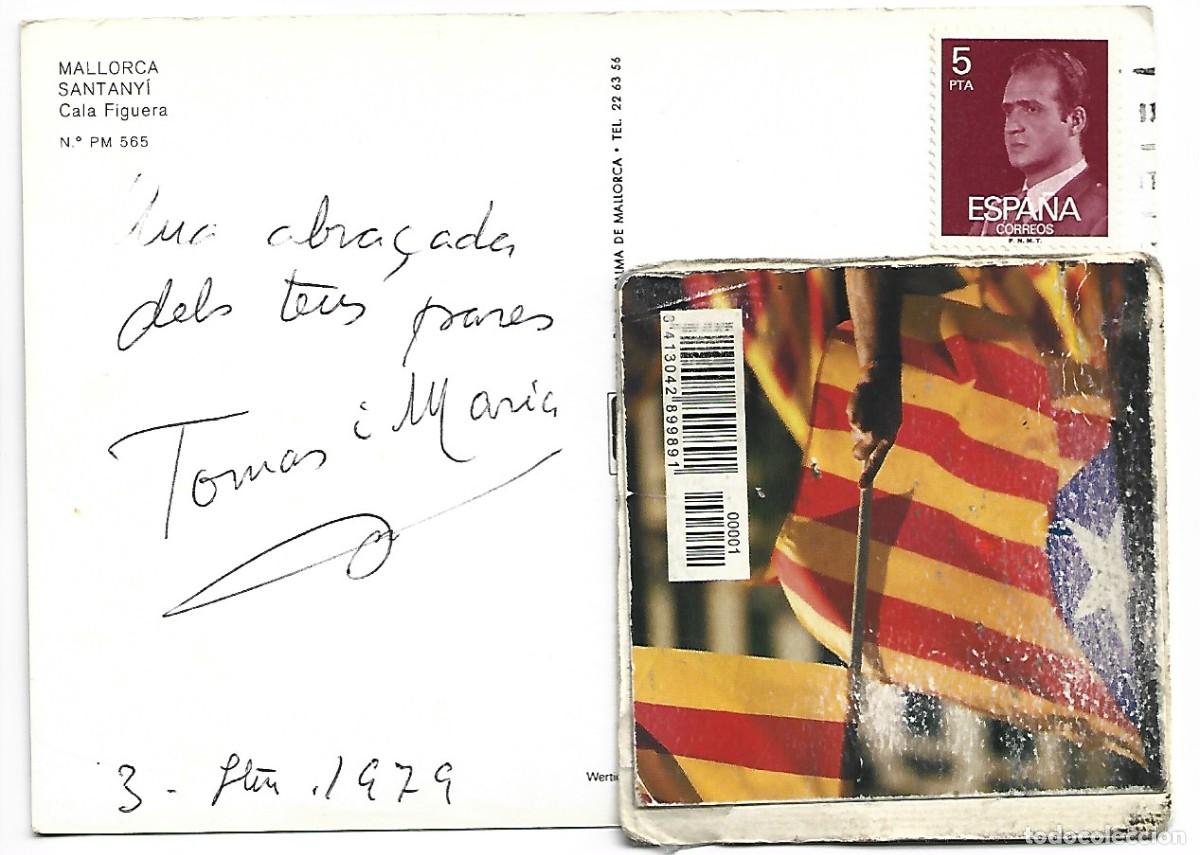 MALLORCA
SANTANYÍ
Cala Figuera
N.º PM 565
Una abraçada
dels teus pares
Tomas i Maria
3 - .1979
IMA DE MALLORCA • TEL. 22 63 56
Werti
5
PTA
ESPAÑA
CORREOS
F.N.M.T.
9413042899891
00001
todocoleccion